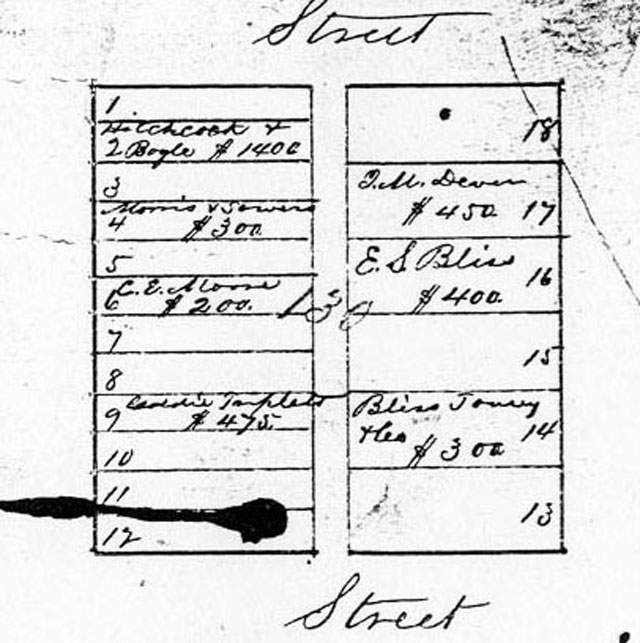 Street
1
Hitchcock &
2 Bogle $1400
3
Morris & Sowers
4 $300
5
C. E. Moore
6 $200.
7
8
Templeton
9 $475.
10
11
12
130
18
J. M. Deven
$450 17
E. S. Bliss
$400 16
15
Bliss Towsey
& Co $300 14
13
Street